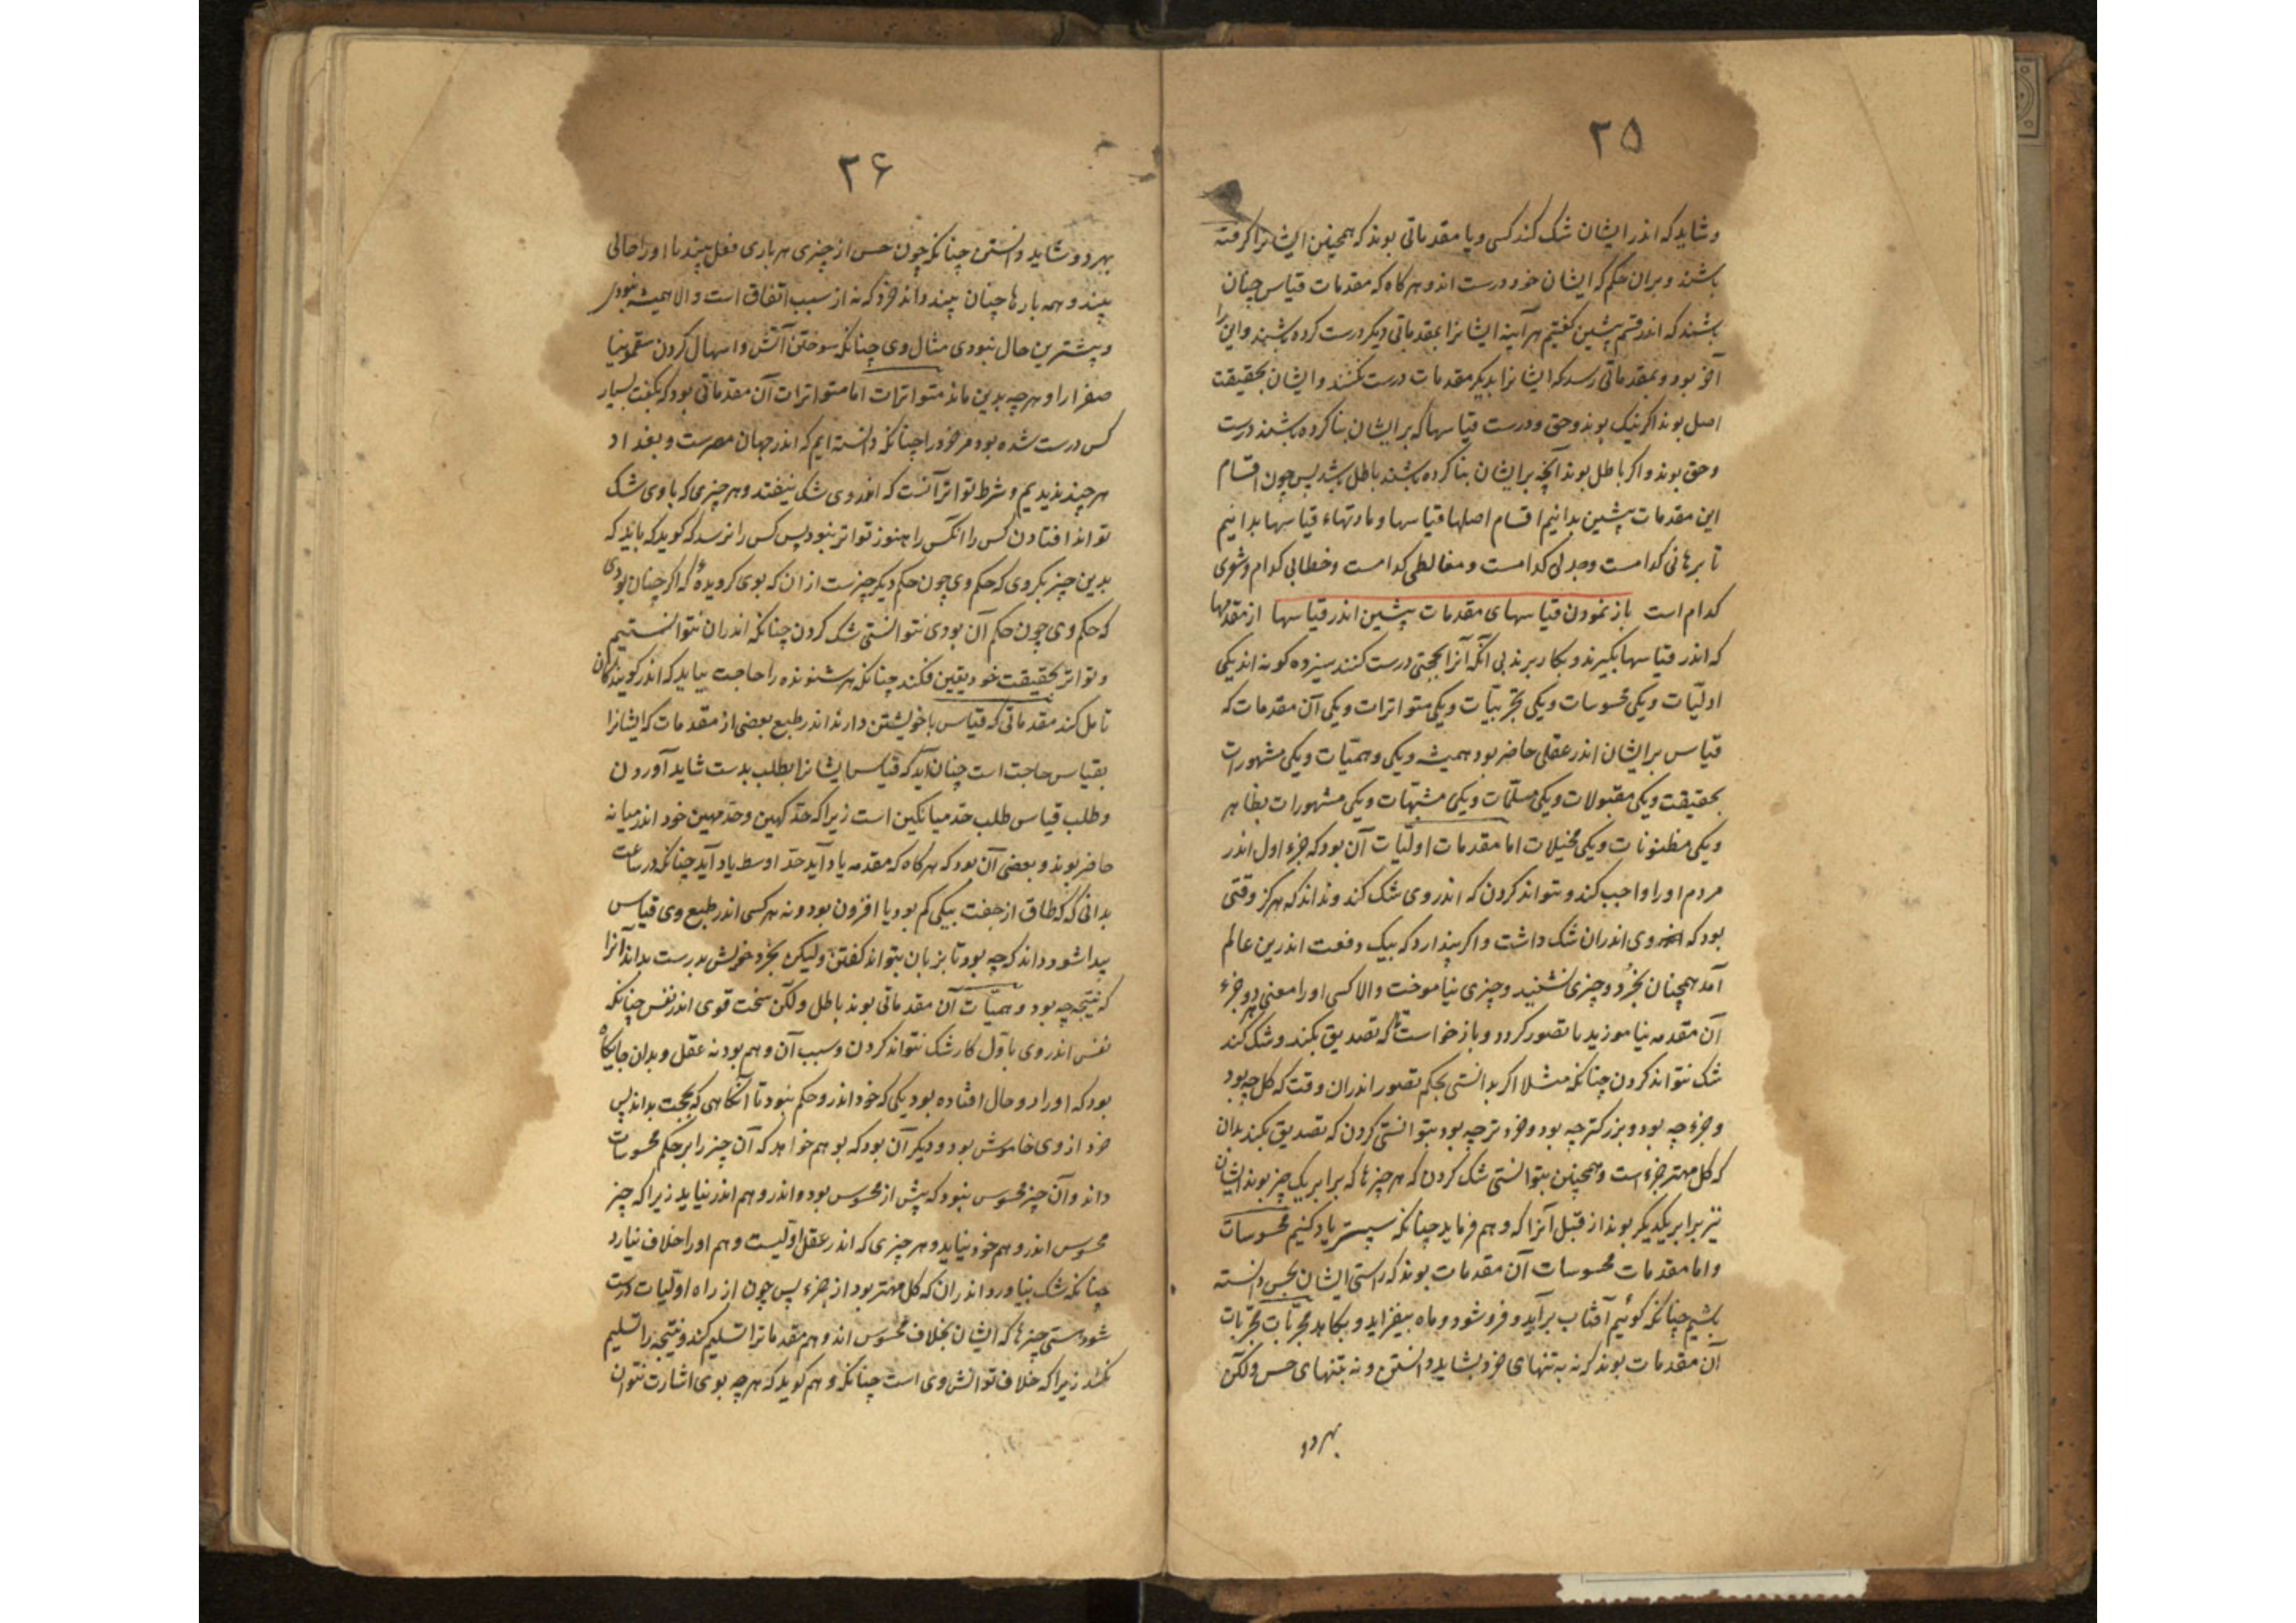 ۲۵
و شاید که اندر ایشان شک کند کسی و یا مقدماتی بوند که همچنین ایشانرا گرفته
باشند و بران حکم که ایشان خود درست اند و هر کاه که مقدمات قیاس چنان
باشند که اندر قسم پیشین کفتیم هر آینه ایشانرا بمقدماتی دیکر درست کرده باشند و این را
آخر بود و بمقدماتی رسد که ایشانرا بدیکر مقدمات درست نکنند و ایشان بحقیقت
اصل بوند اکر نیک بوند و حق و درست قیاسها که بر ایشان بنا کرده باشند درست
و حق بوند و اکر باطل بوند آنچه بر ایشان بنا کرده باشند باطل باشد پس چون اقسام
این مقدمات پیشین بدانیم اقسام اصلها قیاسها و مادتهاء قیاسها بدانیم
تا برهانی کدامست و جدلی کدامست و مغالطی کدامست و خطابی کدام و شعری
کدام است باز نمودن قیاسهای مقدمات پیشین اندر قیاسها از مقدمها
که اندر قیاسها بکیرند و بکار برند بی آنکه آنرا بحجتی درست کنند سیزده کونه اند یکی
اولیّات و یکی محسوسات و یکی تجربیّات و یکی متواترات و یکی آن مقدمات که
قیاس بر ایشان اندر عقلی حاضر بود همیشه و یکی وهمیّات و یکی مشهورات
بحقیقت و یکی مقبولات و یکی مسلّمات و یکی مشبّهات و یکی مشهورات بظاهر
و یکی مظنونات و یکی مخیلات اما مقدمات اولیّات آن بود که خرد اول اندر
مردم او را واجب کند و نتواند کردن که اندر وی شک کند و نداند که هرکز وقتی
بود که وی اندران شک داشت و اکر پندارد که بیک دفعت اندرین عالم
آمد همچنان بخرد و چیزی نشنید و چیزی نیاموخت والا کسی او را معنی هر دو جزء
آن مقدمه نیاموزید تا تصور کرد و باز خواست که تصدیق بکند و شک کند
شک نتواند کردن چنانکه مثلا اکر بدانستی بحکم تصور اندران وقت که کل چه بود
و جزء چه بود و بزرکتر چه بود و خردتر چه بود نتوانستی کردن که تصدیق نکند بدان
که کل مهتر جزء است و همچنین نتوانستی شک کردن که هر چیزها که برابر یک چیز بوند ایشان
نیز برابر یکدیکر بوند از قبل آنرا که وهم فرماید چنانکه سپستر یاد کنیم محسوسات
و اما مقدمات محسوسات آن مقدمات بوند که راستی ایشان بحس دانسته
باشیم چنانکه کوئیم آفتاب برآید و فرو شود و ماه بیفزاید و بکاهد مجرّبات مجرّبات
آن مقدمات بوند که نه به تنهای خرد بشاید دانستن و نه بتنهای حس ولکن
بهر دو
۲۶
بهر دو شاید دانستن چنانکه چون حس از چیزی هر باری فعل بیند یا او را حالی
بیند و همه بارها چنان بیند داند خرد که نه از سبب اتفاق است والا همیشه نبودی
و بیشترین حال نبودی مثال وی چنانکه سوختن آتش و اسهال کردن سقمونیا
صفرا را و هر چه بدین ماند متواترات اما متواترات آن مقدماتی بود که بکفت بسیار
کس درست شده بود مر خرد را چنانکه دانسته ایم که اندر جهان مصرست و بغداد
هر چند ندیدیم و شرط تواتر آنست که اندر وی شک نیفتد و هر چیزی که با وی شک
تواند افتادن کس را آنکس را هنوز تواتر نبود پس کس را نرسد که کوید که باید که
بدین چیز بکروی که حکم وی چون حکم دیکر چیزست از ان که بوی کرویدهٔ که اکر چنان بودی
که حکم وی چون حکم آن بودی نتوانستی شک کردن چنانکه اندران نتوانستیم
و تواتر بحقیقت خود یقین فکند چنانکه هر شنونده را حاجت نیاید که اندر کویندکان
تامل کند مقدماتی که قیاس با خویشتن دارند اندر طبع بعضی از مقدمات که ایشانرا
بقیاس حاجت است چنان آید که قیاس ایشانرا بطلب بدست شاید آوردن
و طلب قیاس طلب حدّ میانکین است زیرا که حدّ کهین و حدّ مهین خود اندر میانه
حاضر بوند و بعضی آن بود که هر کاه که مقدمه یاد آید حدّ اوسط یاد آید چنانکه در ساعت
بدانی که طاق از جفت بیکی کم بود یا افزون بود و نه هر کسی اندر طبع وی قیاس
پیدا شود داند که چه بود تا بزبان بتواند کفتن ولیکن بخرد خویش بدرست بداند آنرا
که نتیجه چه بود وهمیّات آن مقدماتی بوند باطل ولکن سخت قوی اندر نفس چنانکه
نفس اندر وی باوّل کار شک نتواند کردن و سبب آن وهم بود نه عقل و بدان جایکاه
بود که او را دو حال افتاده بود یکی که خرد اندر و حکم نبود تا آنکاهی که بحجت بداند پس
خرد از وی خاموش بود و دیکر آن بود که بوهم خواهد که آن چیز را بر حکم محسوسات
داند و آن چیز محسوس نبود که پیش از محسوس بود و اندر وهم اندر نیاید زیرا که چیز
محسوس اندر وهم خود نیاید و هر چیزی که اندر عقل اولیست وهم او را خلاف نیارد
چنانکه شک نیاورد اندران که کل مهتر بود از جزء پس چون از راه اولیات درست
شود هستی چیزها که ایشان بخلاف محسوس اند وهم مقدماترا تسلیم کند و نتیجه را تسلیم
نکند زیرا که خلاف توانش وی است چنانکه وهم کوید که هر چه بوی اشارت نتوان